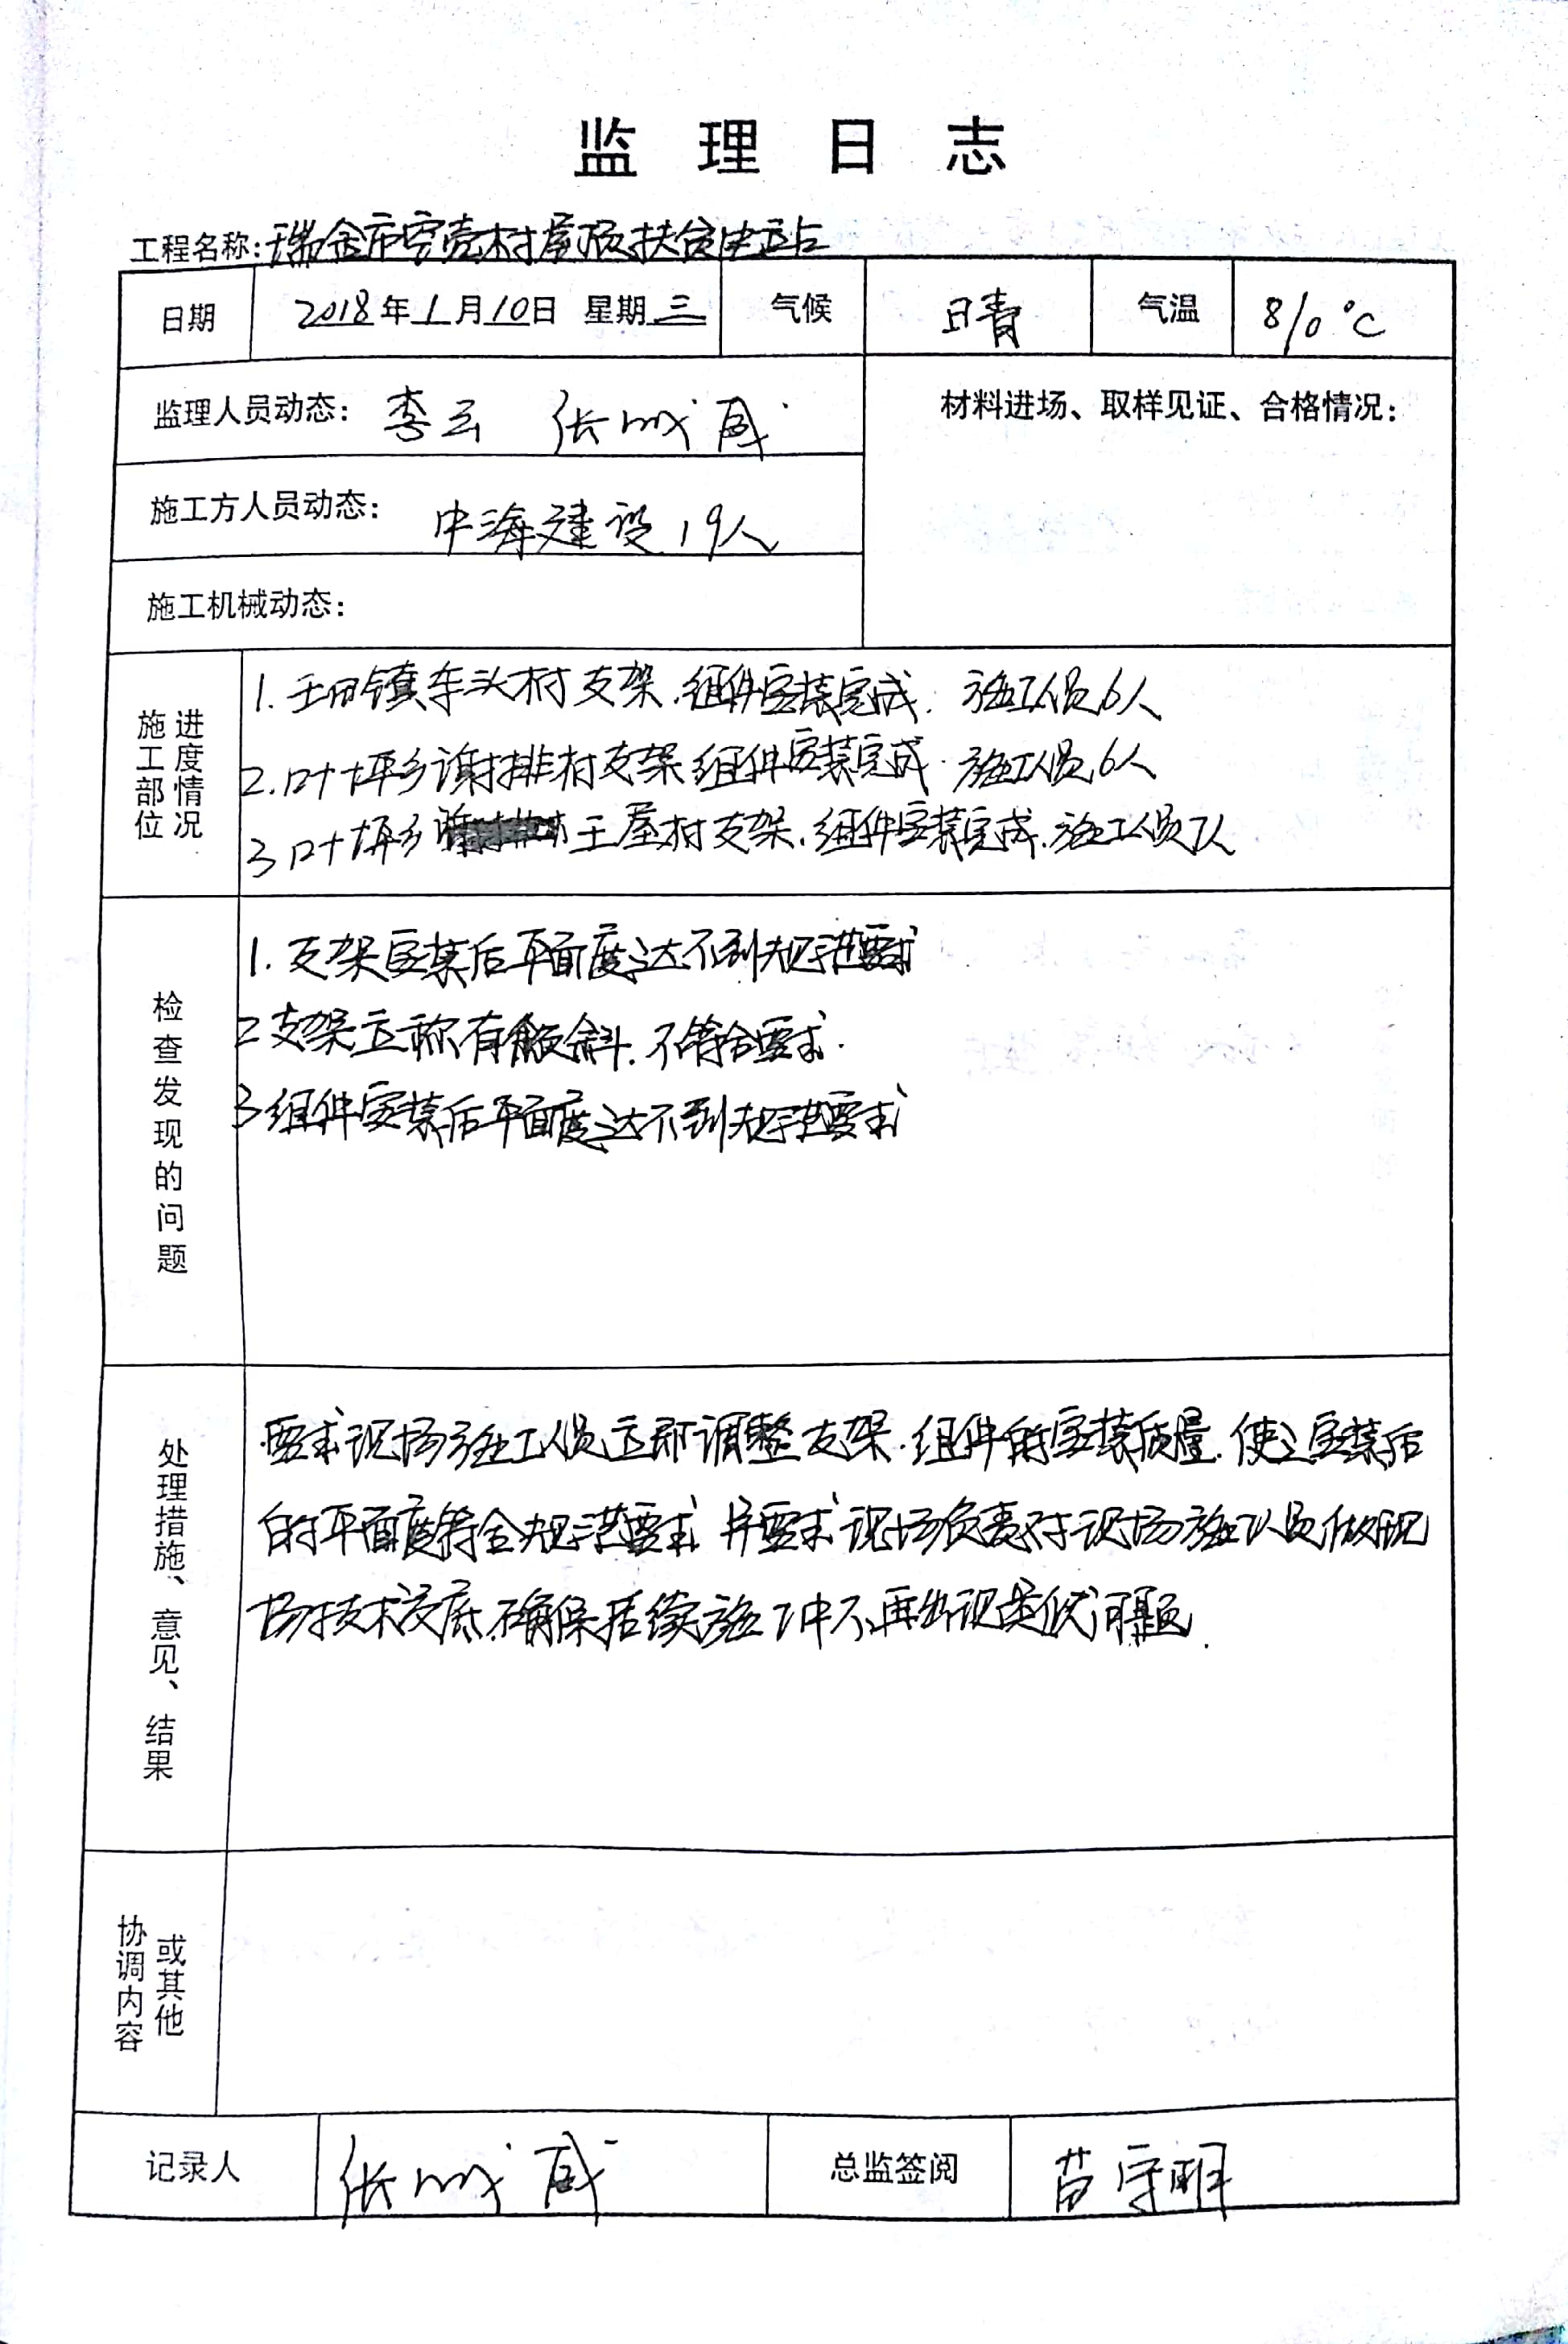 监理日志
工程名称:瑞金市空壳村屋顶扶贫电站
日期 2018年1月10日 星期三 气候 晴 气温 8/0℃
监理人员动态: 李云 张 威 材料进场、取样见证、合格情况:
施工方人员动态: 中海建设19人
施工机械动态:
施工部位进度情况
1. 壬田镇车头村支架.组件安装完成. 施工人员6人
2.叶坪乡谢排村支架组件安装完成. 施工人员6人
3 叶坪乡 王屋村支架.组件安装完成.施工人员7人
检查发现的问题
1. 支架安装后平面度达不到规范要求
2 支架立称有倾斜.不符合要求.
3 组件安装后平面度达不到规范要求
处理措施、意见、结果
要求现场施工人员立即调整支架.组件的安装质量.使之安装后
的平面度符合规范要求 并要求现场负责对现场施工人员做现
场技术交底.确保后续施工中不再出现类似问题.
协调内容或其他
记录人 张 威 总监签阅 苗守明